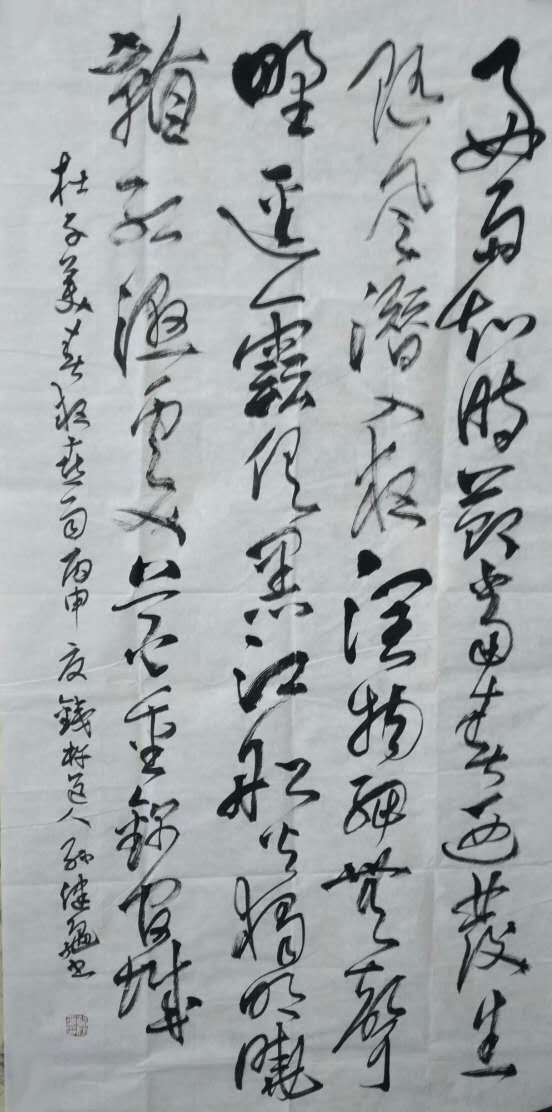 好雨知時節當春迺發生
隨風潛入夜潤物細無聲
野逕雲俱黑江船火獨明曉
看紅濕處花重錦官城
杜子美春夜喜雨丙申夏道人書